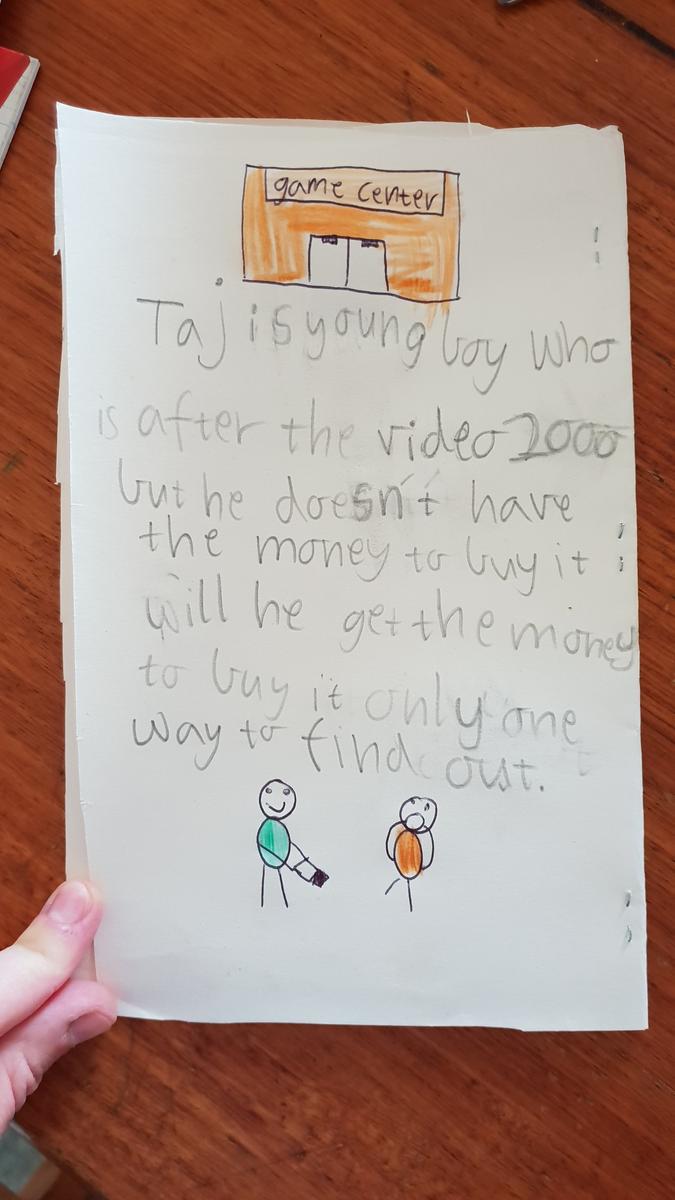 game center
Taj is young boy who
is after the video 2000
but he doesn't have
the money to buy it
will he get the money
to buy it only one
way to find out.